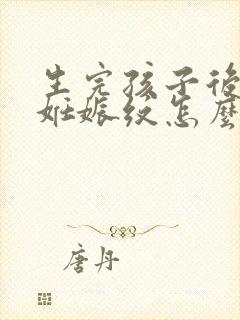 生完孩子後
妊娠纹怎麼
唐丹